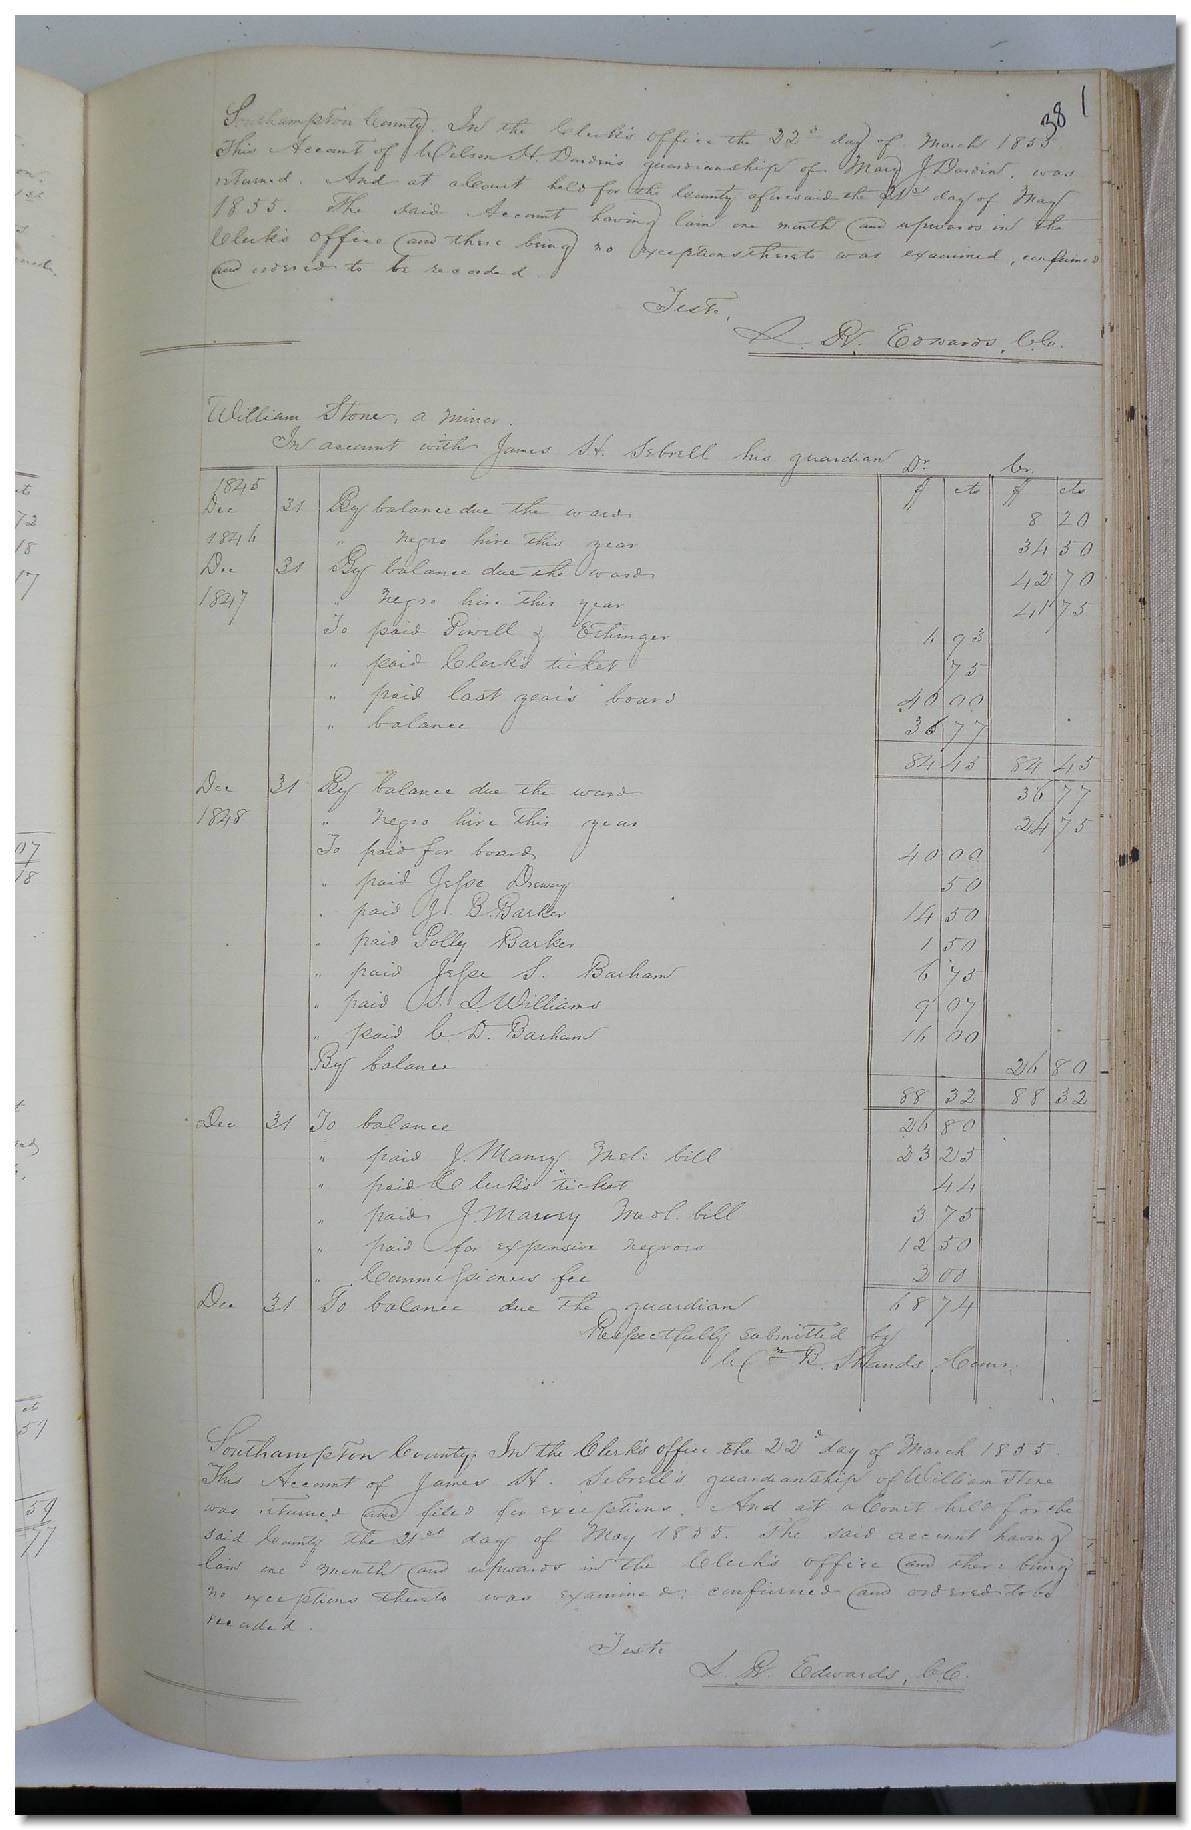 381
Southampton County. In the Clerk's office the 22d day of March 1855
This Account of Wilson H. Darden's guardianship of Mary J Darden, was
returned. And at a Court held for the County aforesaid the 21st day of May
1855. The said Account having lain one month and upwards in the
Clerk's office and there being no exceptions thereto was examined, confirmed
and ordered to be recorded.
Teste,
L. R. Edwards, C.C.
William Stone, a minor.
In account with James H. Sebrell his guardian Dr. Cr.
1845 $ cts $ cts
Dec 31 By balance due the ward 8 20
1846 " negro hire this year 34 50
Dec 31 By balance due the ward 42 70
1847 " negro hire this year 41 75
To paid Powell & Ethinger 1 93
" paid Clerk's ticket 75
" paid last year's board 40 00
" balance 36 77
84 45 84 45
Dec 31 By balance due the ward 36 77
1848 " negro hire this year 24 75
To paid for board 40 00
" paid Jesse Drewry 50
" paid J. B. Barker 14 50
" paid Polly Barker 1 50
" paid Jesse S. Barham 6 75
" paid S. L Williams 9 07
" paid C. D. Barham 16 00
By balance 26 80
88 32 88 32
Dec 31 To balance 26 80
" paid J. Maury Med: bill 23 25
" paid Clerk's ticket 44
" paid J. Maury Med. bill 3 75
" paid for expensive negroes 12 50
" Commissioners fee 2 00
Dec 31 To balance due the guardian 68 74
Respectfully submitted by
Wm B. Shands, Comr.
Southampton County. In the Clerk's office the 22d day of March 1855.
This Account of James H. Sebrell's guardianship of William Stone
was returned and filed for exceptions. And at a Court held for the
said County the 21st day of May 1855. The said account having
lain one month and upwards in the Clerk's office and there being
no exceptions thereto was examined, confirmed and ordered to be
recorded.
Teste
L. R. Edwards, C.C.